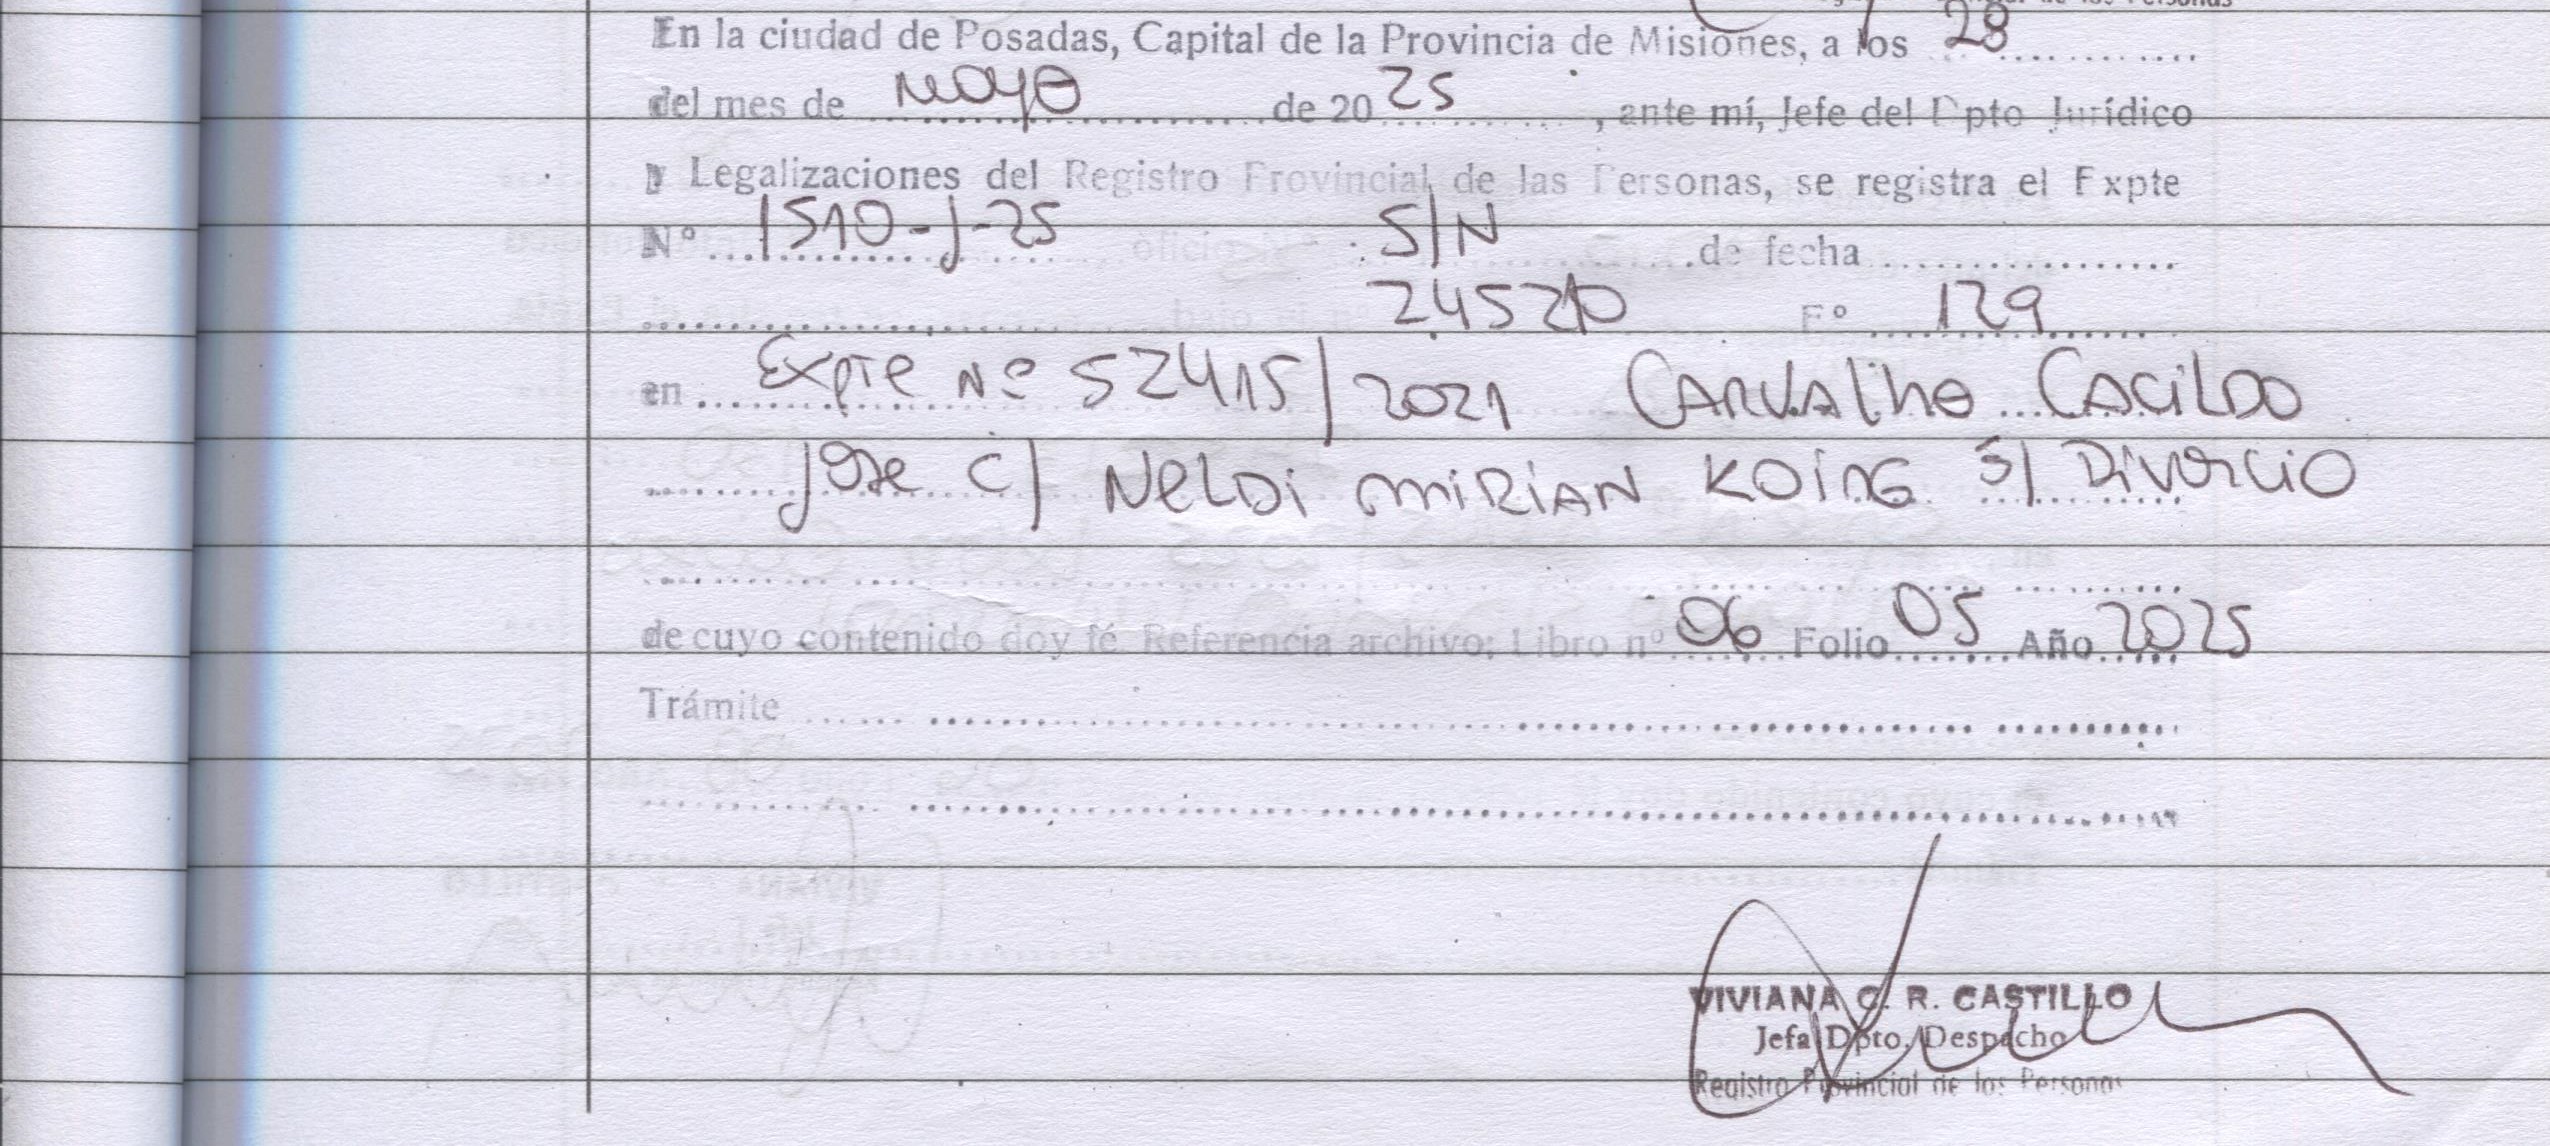 En la ciudad de Posadas, Capital de la Provincia de Misiones, a los 28
del mes de mayo de 20 25, ante mí, Jefe del Dpto Jurídico
y Legalizaciones del Registro Provincial de las Personas, se registra el Expte
N° 1510-J-25 oficio S/N de fecha
bajo el n° F° 129
en Expte Nº 52415/2021 CARVAlho CACiLDO
Jose C/ NeLDi MiRiAN KOinG S/ Divorcio
de cuyo contenido doy fé Referencia archivo: Libro n° 06 Folio 05 Año 2025
Trámite
VIVIANA C. R. CASTILLO
Jefa Dpto. Despacho
Registro Provincial de las Personas